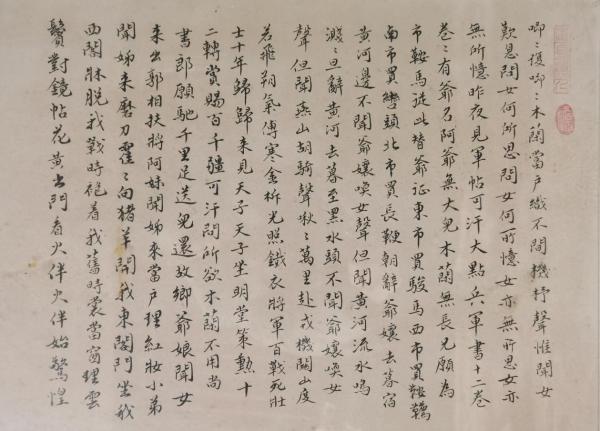 唧〻復唧〻木蘭當户織不聞機杼聲惟聞女
歎息問女何所思問女何所憶女亦無所思女亦
無所憶昨夜見軍帖可汗大點兵軍書十二卷
卷〻有爺名阿爺無大兒木蘭無長兄願為
市鞍馬從此替爺征東市買駿馬西市買鞍韉
南市買轡頭北市買長鞭朝辭爺孃去暮宿
黃河邊不聞爺孃喚女聲但聞黃河流水鳴
濺〻旦辭黃河去暮至黑水頭不聞爺孃喚女
聲但聞燕山胡騎聲啾〻萬里赴戎機關山度
若飛朔氣傳寒金柝光照鐵衣將軍百戰死壯
士十年歸歸來見天子天子坐明堂策勳十
二轉賞賜百千彊可汗問所欲木蘭不用尚
書郎願馳千里足送兒還故鄉爺娘聞女
來出郭相扶將阿妹聞姊來當户理紅妝小弟
聞姊來磨刀霍〻向猪羊開我東閣門坐我
西閣牀脫我戰時袍着我舊時裳當窗理雲
鬢對鏡帖花黃出門看火伴火伴始驚惶